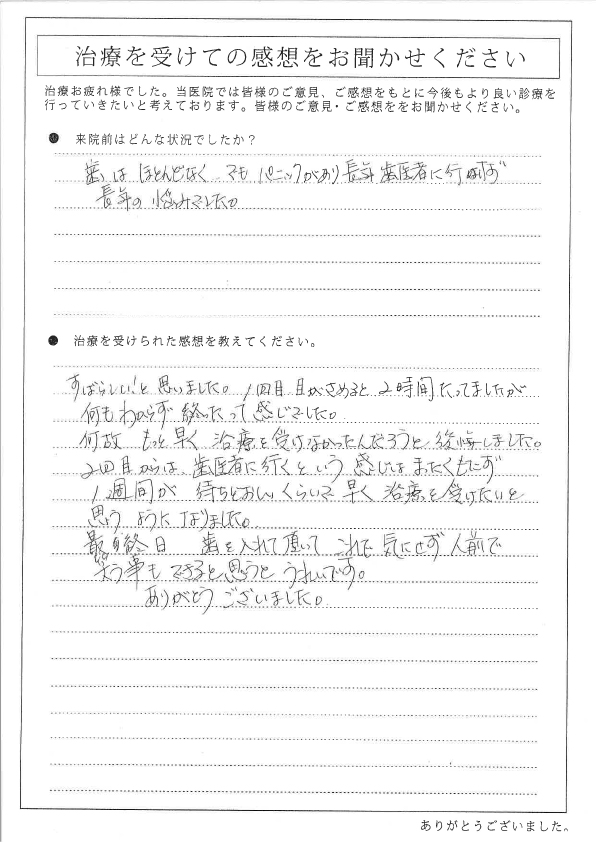 治療を受けての感想をお聞かせください
治療お疲れ様でした。当医院では皆様のご意見、ご感想をもとに今後もより良い診療を
行っていきたいと考えております。皆様のご意見・ご感想ををお聞かせください。
● 来院前はどんな状況でしたか？
歯は ほとんどなく でも パニックがあり 長年 歯医者に行けず
長年の 悩みでした。
● 治療を受けられた感想を教えてください。
すばらしい!と 思いました。1回目 目がさめると 2時間たってましたが
何もわからず 終ったって感じでした。
何故 もっと早く 治療を受けなかったんだろうと 後悔しました。
2回目からは 歯医者に行くという 感じは まったくもたず
1週間が 待ちどおしいくらいで 早く 治療を受けたいと
思う ように なりました。
最終日 歯を入れて頂いて これで 気にせず 人前で
笑う事も できると思うと うれしいです。
ありがとう ございました。
ありがとうございました。